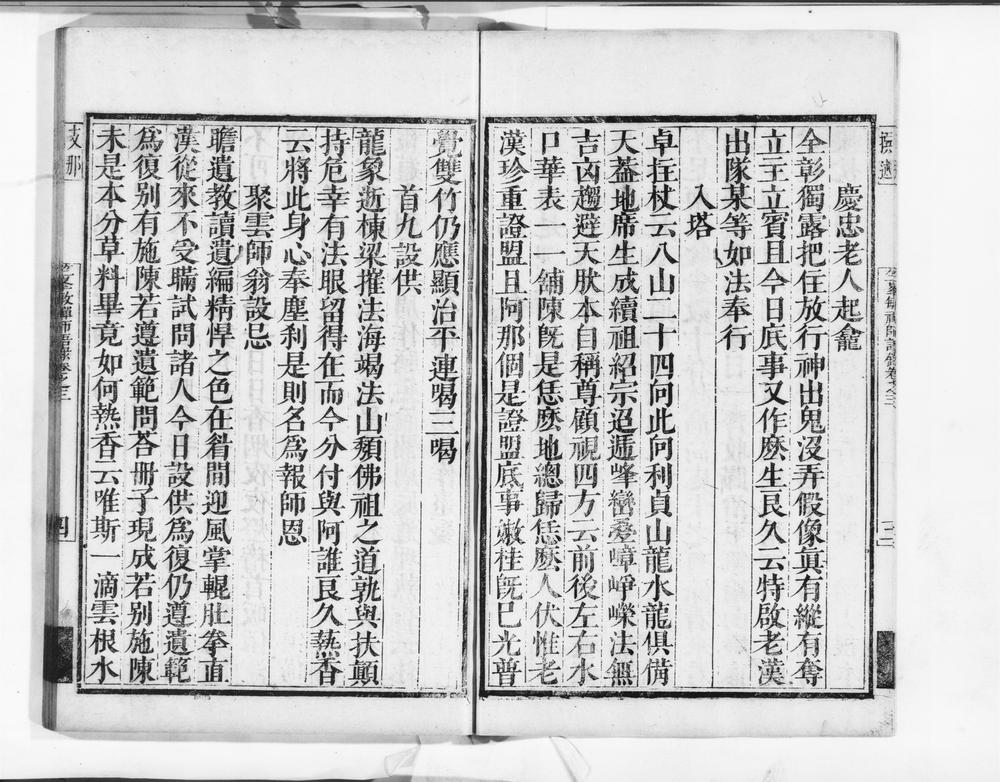 慶忠老人起龕
全彰獨露把住放行神出鬼沒弄假像眞有縱有奪
立主立賓且今日底事又作麽生良久云特啟老漢
出隊某等如法奉行
入塔
卓拄杖云八山二十四向此向利貞山龍水龍俱備
天葢地席生成續祖紹宗迢遞峰巒叠嶂崢嶸法無
吉凶趨避天然本自稱尊顧視四方云前後左右水
口華表一一舖陳旣是恁麽地總歸恁麽人伏惟老
漢珍重證盟且阿那個是證盟底事嫩桂旣已光普
覺雙竹仍應顯治平連喝三喝
首九設供
龍象逝棟梁摧法海竭法山頹佛祖之道孰與扶顛
持危幸有法眼留得在而今分付與阿誰良久熱香
云將此身心奉塵刹是則名爲報師恩
聚雲師翁設忌
瞻遺教讀遺編精悍之色在眉間迎風掌輥肚拳直
漢從來不受瞞試問諸人今日設供爲復仍遵遺範
爲復別有施陳若遵遺範問荅冊子現成若別施陳
未是本分草料畢竟如何熱香云唯斯一滴雲根水
支那
禪師語錄卷之三
四